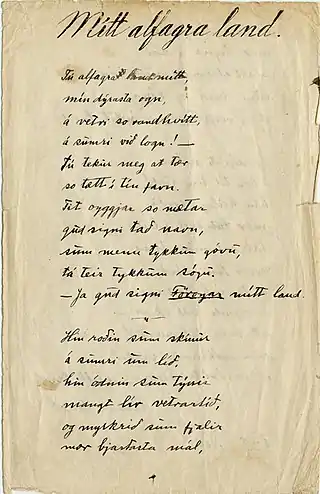 Mítt alfagra land.
Tú alfagra land mítt,
mín dýrasta ogn,
á vetri so randhvítt,
á sumri við logn! —
Tú tekur meg at tær
so tætt í tín favn.
Tit oyggjar so mætar
gud signi tað navn,
sum menn tykkum góvu,
tá teir tykkum sógu.
— Ja gud signi Föroyar mítt land.
"
Hin roðin sum skínur
á sumri um líð,
hin ódnin sum týnir
mangt lív vetrartíð,
og myrkrið sum fjalir
mær bjartasta mál,